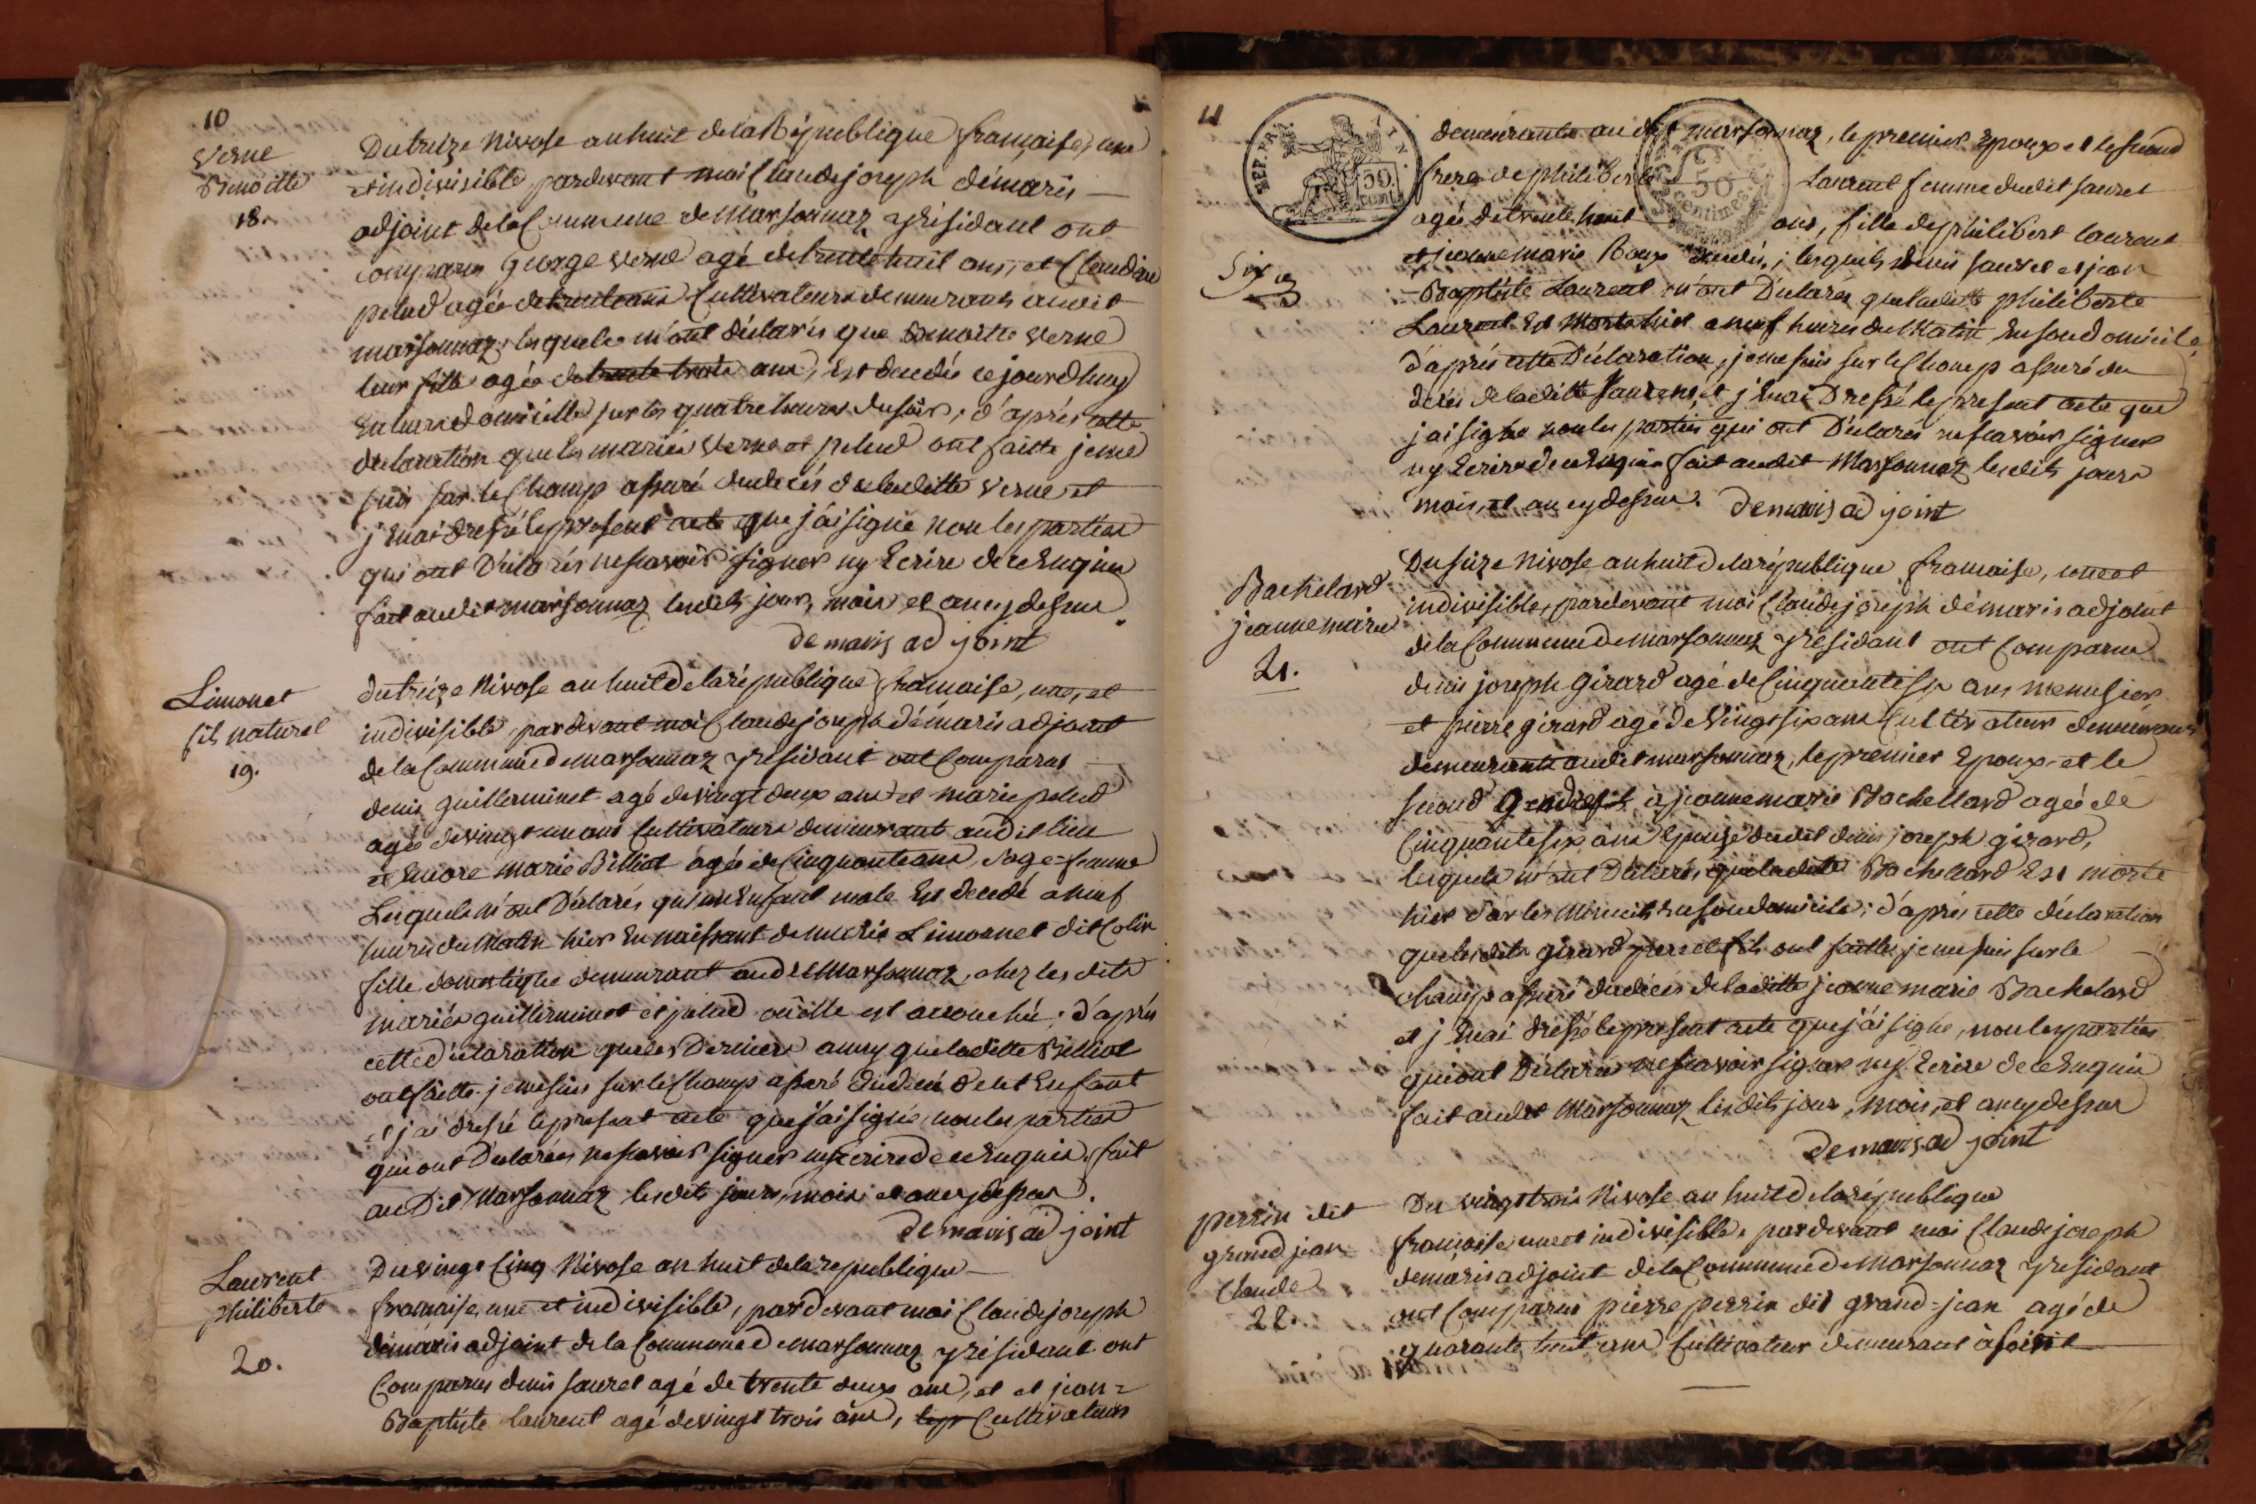 10
Verne
Benoitte
18.
Du treize Nivose an huit de la République française, une
et indivisible, pardevant moi Claude joseph démaris
adjoint de la Commune de Marsonnaz y résidant ont
comparus george verne agé de trente huit ans, et Claudine
pelud agée de trente ans Cultivateurs demeurants audit
marsonnaz, lesquels m'ont déclarés que Benoitte Verne
leur fille agée de ans, Est decedée ce jourd huy
En leur domicille sur les quatre heures du soir, d'aprés cette
declaration que les mariés Verne et pelud ont faitte je me
suis sur le Champ assuré du decés de laditte Verne et
j'En ai dressé le present acte que j'ai signé non les parties
qui ont Déclarés ne scavoir signer ny Ecrire de ce Enquis
fait audit marsonnaz lesdits jour, mois et an cy dessus.
demaris ad joint
Limonet
fils naturel
19.
du treize Nivose an huit de la république francaise, une, et
indivisible, pardevant moi Claude joseph démaris adjoint
de la Commune de marsonnaz y residant ont Comparus
denis guillerminet agé de vingt deux ans et marie pelud
agée de vingt un ans Cultivateurs demeurant audit lieu
et Encore marie Billiot agée de Cinquante ans sage=femme
Lesquels m'ont Déclarés qu'un Enfant male Est decedé a neuf
heures du Matin hier En naissant de marie Limonet dit Colin
fille domestique demeurant audit Marsonnaz, chez les dits
mariés guillerminet et pelud ou elle est accouchée ; d'aprés
cette déclaration que ces Derniers ainsy que laditte Billiot
ont faitte. je me suis sur le Champ assuré du decés de cet Enfant
et j'ai dressé le present acte que j'ai signé, non les parties
qui ont Déclarées ne scavoir signer ny Ecrire de ce Enquis. fait
au Dit Marsonnaz lesdits jours, mois et an cy dessus.
demaris ad joint
Laurent
philiberte
20.
Du vingt Cinq Nivose an huit de la republique
francaise, une et indivisible, pardevant moi Claude joseph
démaris adjoint de la Commune de marsonnaz y résidant ont
Comparus denis sauret agé de trente deux ans, et et jean=
Baptiste Laurent agé de vingt trois ans, Cultivateurs
11
REP. FRA.
50.
cent.
50
centimes
Six
demeurants au dit marsonnaz, le premier Epoux et le second
frere de philiberte Laurent femme dudit sauret
agée de trente huit ans, fille de philibert laurent
et jeanne marie Roux decedés, ; lesquels denis sauret et jean
=Baptiste Laurent m'ont Déclarés que laditte philiberte
Laurent Est Morte hier a neuf heures du Matin En son domicile,
d'aprés cette Déclaration, je me suis sur le Champ assuré du
decés de laditte Laurent, et j'En ai Dressé le present acte que
j'ai signé non les parties qui ont Déclarés ne scavoir signer
ny Ecrire de ce Enquis fait audit Marsonnaz lesdits jours
mois, et an cy dessus. demaris ad joint
Bachelard
jeanne marie
21.
Du seize Nivose an huit de la république francaise, une et
indivisible, pardevant moi Claude joseph démaris adjoint
de la Commune de marsonnaz y residant ont Comparus
denis joseph girard agé de Cinquante six ans menusier
et pierre girard agé de Vingt six ans Cultivateur demeurant
demeurants audit marsonnaz, le premier Epoux et le
second à jeanne marie Bachellard agée de
Cinquante six ans Epouse dudit denis joseph girard,
lesquels m'ont Déclarés, que laditte Bachellard Est morte
hier sur les Minuit En son domicile; d'aprés cette déclaration
que lesdits girard pere et fils ont faittes je me suis sur le
champ assuré du decés de laditte jeanne marie Bachelard
et j'En ai dressé le present acte que j'ai signé, non les parties
qui ont Déclarés ne scavoir signer ny Ecrire de ce Enquis
fait audit Marsonnaz lesdits jour, mois, et an cy dessus
demaris ad joint
perrin dit
grand jean
Claude
22.
Du vingt trois Nivose an huit de la république
francaise, une et indivisible. pardevant moi Claude joseph
demaris adjoint de la Commune de Marsonnaz y residant
ont Comparus pierre perrin dit grand=jean agé de
quarante huit ans Cultivateur demeurant à